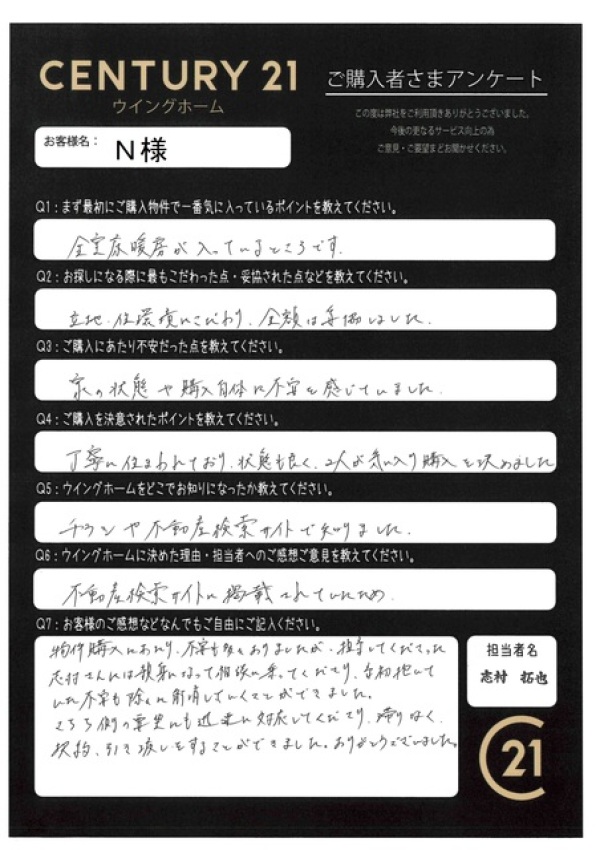 CENTURY 21
ウイングホーム
ご購入者さまアンケート
この度は弊社をご利用頂きありがとうございました。
今後の更なるサービス向上の為
ご意見・ご要望をお聞かせください。
お客様名： N様
Q1：まず最初にご購入物件で一番気に入っているポイントを教えてください。
全室床暖房が入っているところです。
Q2：お探しになる際に最もこだわった点・妥協された点などを教えてください。
立地、住環境にこだわり、金額は妥協しました。
Q3：ご購入にあたり不安だった点を教えてください。
家の状態や購入自体に不安を感じていました。
Q4：ご購入を決意されたポイントを教えてください。
丁寧に住まわれており、状態も良く、2人が気に入り購入を決めました
Q5：ウイングホームをどこでお知りになったか教えてください。
チラシや不動産検索サイトで知りました。
Q6：ウイングホームに決めた理由・担当者へのご感想ご意見を教えてください。
不動産検索サイトに掲載されていたため
Q7：お客様のご感想などなんでもご自由にご記入ください。
物件購入にあたり、不安も多々ありましたが、担当してくださった
志村さんには親身になって相談に乗ってくださり、当初抱いて
いた不安も徐々に解消していくことができました。
こちら側の要望にも迅速に対応してくださり、滞りなく、
契約、引き渡しをすることができました。ありがとうございました。
担当者名
志村 拓也
C21